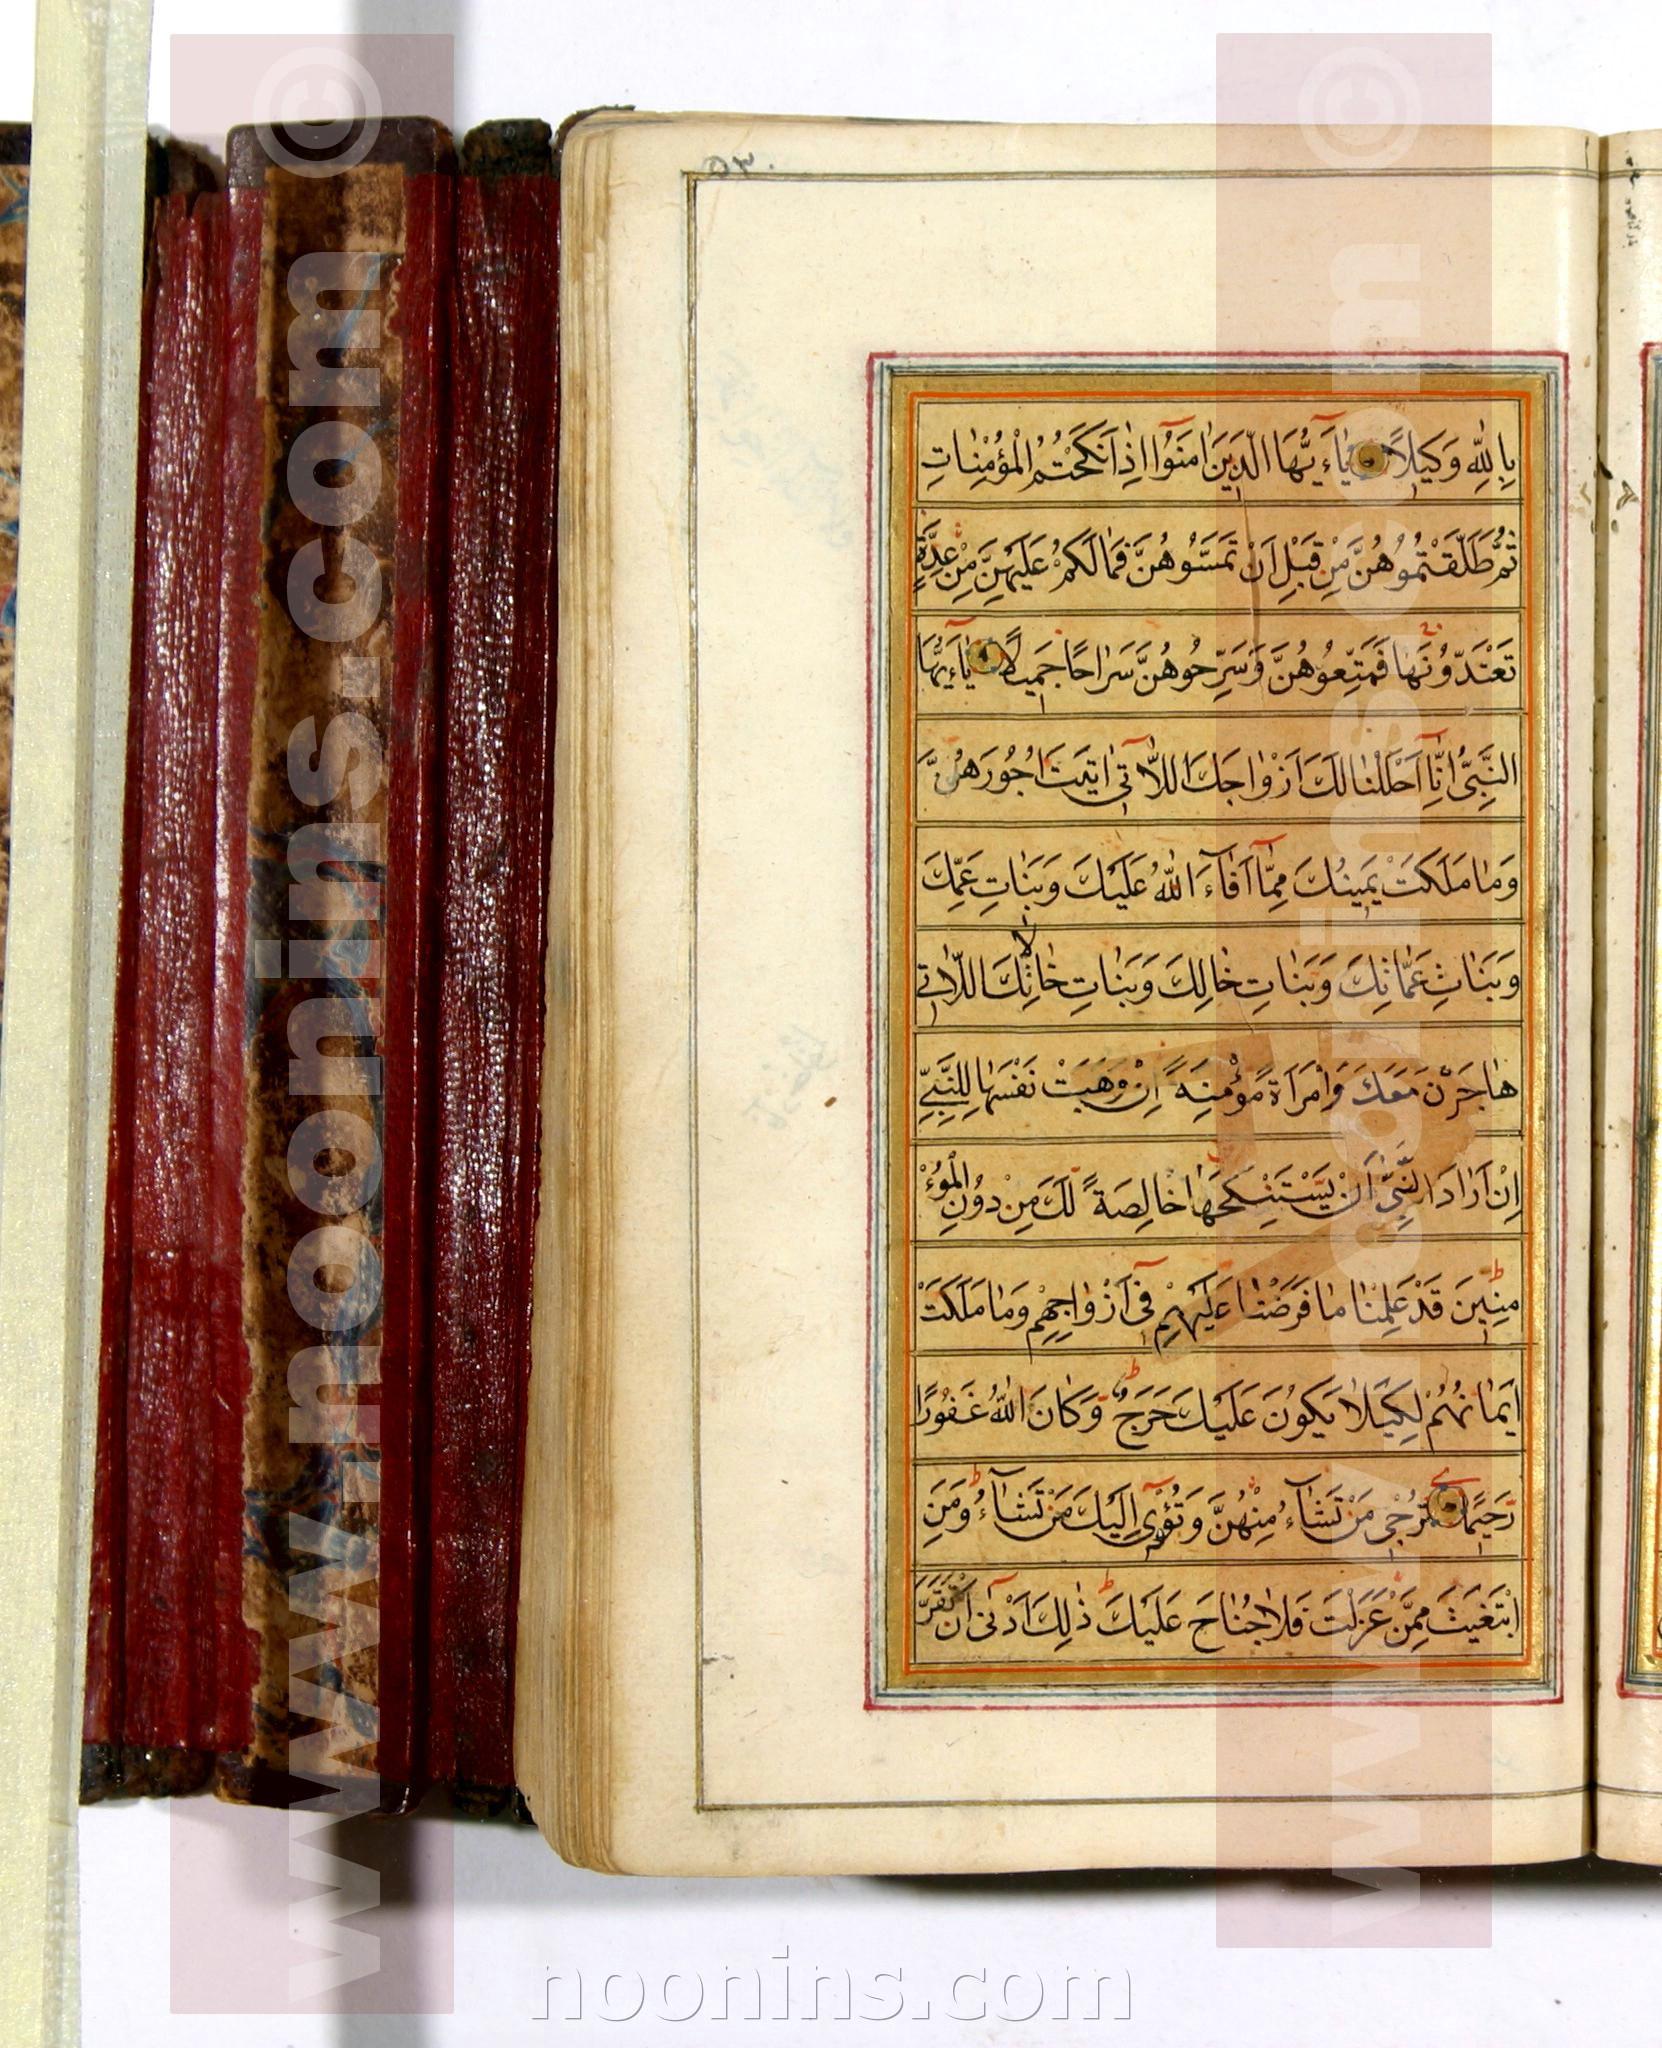 بِاللّٰهِ وَكَيلًا يٰاءَيُّهَا الَّذينَ اٰمَنوُا اِذٰا نَكَحْتُمُ الْمُؤْمِنٰاتِ
ثُمَّ طَلَّقْتُموُهُنَّ مِنْ قَبْلِ اَنْ تَمَسّوُهُنَّ فَمٰا لَكُمْ عَلَيْهِنَّ مِنْ عِدَّةٍ
تَعْتَدّوُنَهٰا فَمَتِّعوُهُنَّ وَسَرِّحوُهُنَّ سَرٰاحًا جَميلًا يٰاءَيُّهَا
النَّبِىُّ اِنّٰا اَحْلَلْنٰا لَكَ اَزْوٰاجَكَ اللّٰاتى اتَيْتَ اُجُورَهُنَّ
وَمٰا مَلَكَتْ يَمينُكَ مِمّٰا اَفٰاءَ اللّٰهُ عَلَيْكَ وَبَنٰاتِ عَمِّكَ
وَبَنٰاتِ عَمّٰاتِكَ وَبَنٰاتِ خٰالِكَ وَبَنٰاتِ خٰالاتِكَ اللّٰاتى
هٰاجَرْنَ مَعَكَ وَامْرَاَةً مُؤْمِنَةً اِنْ وَهَبَتْ نَفْسَهٰا لِلنَّبِىِّ
اِنْ اَرٰادَ النَّبِىُّ اَنْ يَسْتَنْكِحَهٰا خٰالِصَةً لَكَ مِنْ دوُنِ الْمُؤْ
مِنينَ قَدْ عَلِمْنٰا مٰا فَرَضْنٰا عَلَيْهِمْ فى اَزْوٰاجِهِمْ وَمٰا مَلَكَتْ
اَيْمٰانُهُمْ لِكَيْلٰا يَكوُنَ عَلَيْكَ حَرَجٌ وَكٰانَ اللّٰهُ غَفوُرًا
رَحيمًا تُرْجى مَنْ تَشٰاءُ مِنْهُنَّ وَتُؤْى اِلَيْكَ مَنْ تَشٰاءُ وَمَنِ
ابْتَغَيْتَ مِمَّنْ عَزَلْتَ فَلٰا جُنٰاحَ عَلَيْكَ ذٰلِكَ اَدْنٰى اَنْ تَقَرَّ
www.noonins.com ©
www.noonins.com ©
noonins.com